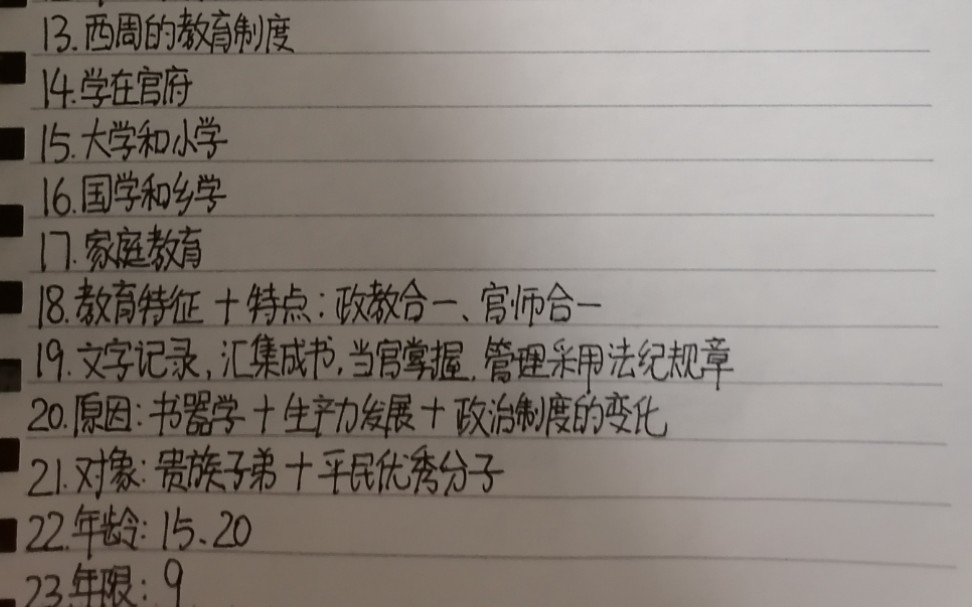 13.西周的教育制度
14.学在官府
15.大学和小学
16.国学和乡学
17.家庭教育
18.教育特征+特点:政教合一、官师合一
19.文字记录,汇集成书,当官掌握,管理采用法纪规章
20.原因:书器学+生产力发展+政治制度的变化
21.对象:贵族子弟+平民优秀分子
22.年龄:15、20
23.年限:9